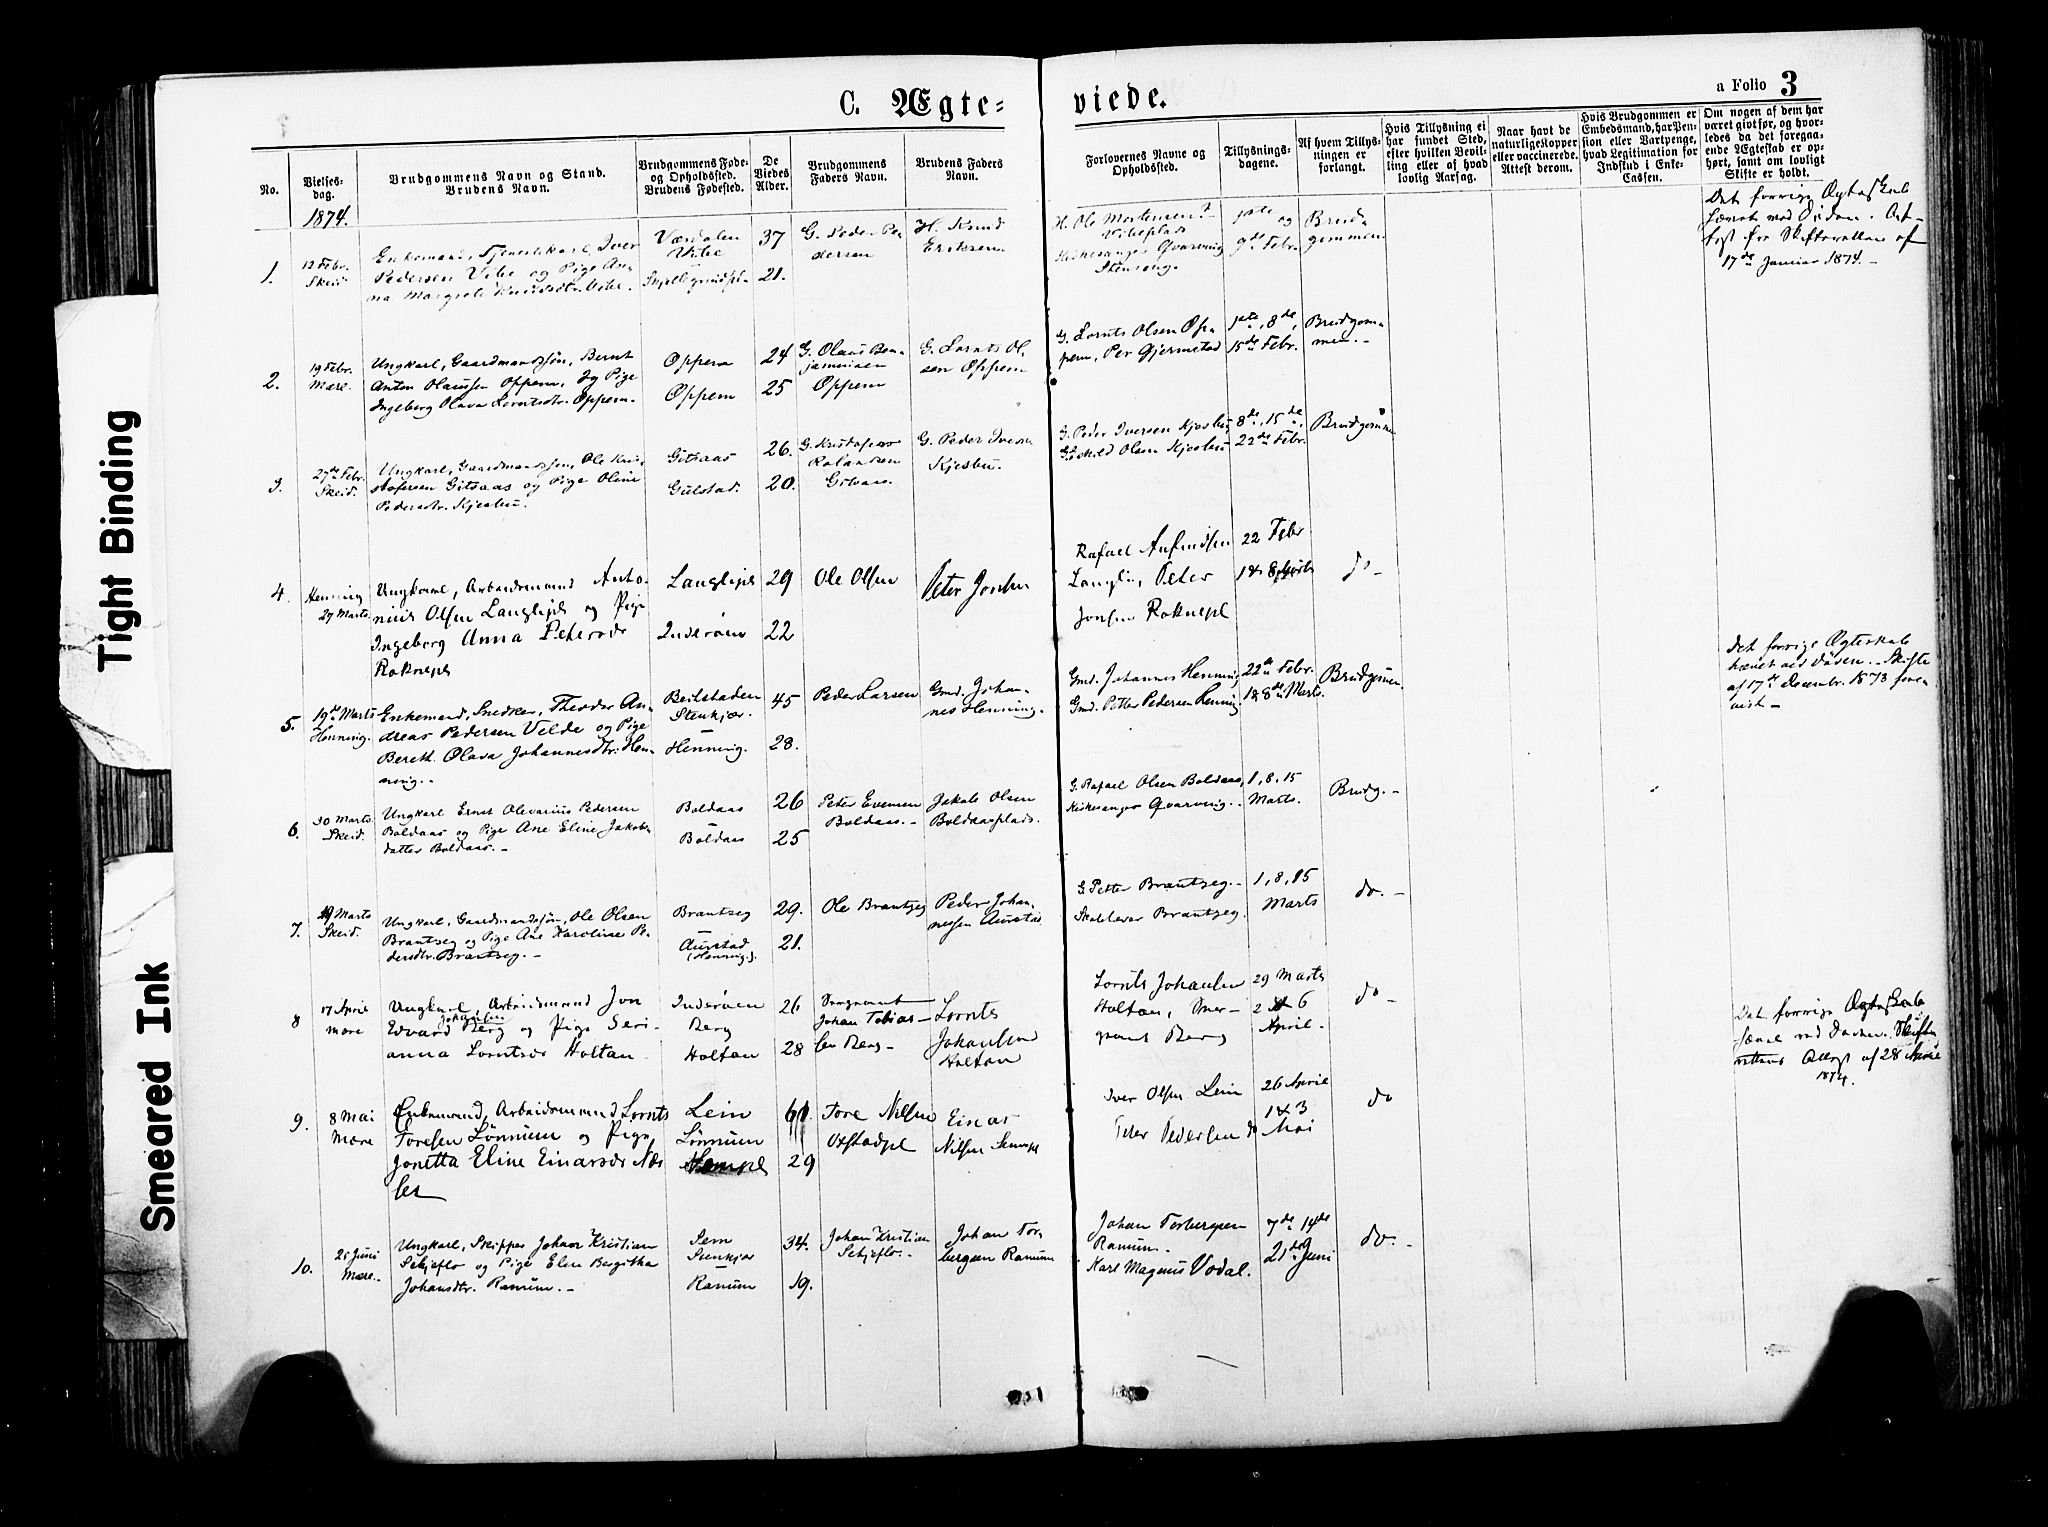 C. Ægte=
viede.
a Folio 3
No.
Vielses-
dag.
1874.
Brudgommens Navn og Stand.
Brudens Navn.
Brudgommens Føde-
og Opholdssted.
Brudens Fødested.
De
Viedes
Alder.
Brudgommens
Faders Navn.
Brudens Faders
Navn.
Forlovernes Navne og
Opholdssted.
Tillysnings-
dagene.
Af hvem Tillys-
ningen er
forlangt.
Hvis Tillysning ei
har fundet Sted,
efter hvilken Bevil-
ling eller af hvad
lovlig Aarsag.
Naar havt de
naturlige Kopper
eller vaccinerede.
Attest derom.
Hvis Brudgommen er
Embedsmand, har Pen-
sion eller Vartpenge,
hvad Legitimation for
Indskud i Enke-
Cassen.
Om nogen af dem har
været gift før, og hvor-
ledes da det foregaa-
ende Ægteskab er op-
hørt, samt om lovligt
Skifte er holdt.
1.
12 Febr.
Skeid.
Enkemand, Tjenestekarl, Iver
Pedersen Vibe og Pige An-
na Margrete Knudsdtr. Vibe.
Værdalen
Vibe
37
21.
G. Peder Pe-
dersen
H. Knud
Eriksen
H. Ole Mortensen
Vibeplads
Kirkesanger Qvarving
1ste og
9de Febr.
Brud-
gommen
Det forrige Ægteskab
hævet ved Døden. At-
test fra Skifteretten af
17de Januar 1874.-
2.
19 Febr.
Mære.
Ungkarl, Gaardmandssøn, Bernt
Anton Olaussen Oppem, og Pige
Ingeborg Olava Lorntsdtr. Oppem.
Oppem
Oppem
24
25
G. Olaus Ben-
jaminsen
Oppem
G. Lornts Ol-
sen Oppem
G. Lornts Olsen Op-
pem, Per Gjermstad
1ste, 8de,
15de Febr.
Brudgom-
men.-
3.
27de Febr.
Skeid.
Ungkarl, Gaardmandssøn, Ole Kri-
stofersen Gitsaas og Pige Oline
Pedersdtr. Kjesbu.
Gitsaas
Gulstad.
26.
20.
G. Kristofer
Rolandsen
Gitsaas.
G. Peder Iversen
Kjesbu.
G. Peder Iversen Kjesbu,
Olsen Kjesbu
8de, 15de,
22de Febr.
Brudgommen
4.
Henning
27 Marts
Ungkarl, Arbeidsmand Anto-
nius Olsen Langlipl og Pige
Ingeborg Anna Petersdr
Roknepl
Langlipl
Inderøen
29
22
Ole Olsen
Peter Jonsen
Rafael Anfindsen
Langli, Peter
Jonsen Roknepl
22 Febr
1 & 8 Marts
do-
5.
19de Marts
Henning.
Enkemand, Snedker, Theodor An-
dreas Pedersen Velde og Pige
Bereth Olava Johannesdtr. Hen-
ning.-
Beilstaden
Stenkjær
Henning.
45
28.
Peder Larsen
Gmd. Johan-
nes Henning.
Gmd. Johannes Henning,
Gmd. Petter Pedersen Henning
22de Febr.
1 & 8de Marts.
Brudgomen.
Det forrige Ægteskab
hævet ved Døden.- Skifte
af 17de Decembr. 1873 fore-
vist-
6.
30 Marts
Skeid.
Ungkarl Ernst Olevarius Pedersen
Boldaas og Pige Ane Eline Jakobs-
datter Boldaas.-
Boldaas
Boldaas
26
25
Peter Evensen
Boldaas.-
Jakob Olsen
Boldaasplads.
G. Rafael Olsen Boldaas,
Kirkesanger Qvarving.-
1, 8, 15
Marts.
Brudg.-
7.
Marts
Skeid.
Ungkarl, Gaardmandssøn, Ole Olsen
Brantseg og Pige Ane Karoline Pe-
dersdtr. Brantseg.-
Brantseg
Aurstad
(Henning.).
29.
21.
Ole Brantseg
Peder Johan-
nessen Aurstad
G. Petter Brantseg.-
Skolelærer Brantseg.
1, 8, 15
Marts
do.-
8
17 April
Mære
Ungkarl, Arbeidsmand Jon
Edvard Johansen Berg og Pige Seri-
anna Lorntsdr Holtan-
Inderøen
Berg
Holtan
26
28
Sergeant
Johan Tobias-
sen Berg-
Lornts
Johansen
Holtan
Lornts Johansen
Holtan, Ser-
geant Berg
29 Marts
2 & 6
April-
do-
9.
8 Mai
Mære
Enkemand, Arbeidsmand Lornts
Toresen Lønnum og Pige
Jonetta Eline Einarsdr Næs-
set
Lein
Lønnum
61.
29
Tore Nilsen
Oxstadpl
Einar
Nilsen Sempl
Iver Olsen Lein
Peter Pedersen do
26 April
1 & 3
Mai
do
Det forrige Ægteskab
hævet ved Døden. Skifte-
rettens Attest af 28 April
1874.
10.
21 Juni
Mære.-
Ungkarl, Skipper Johan Kristian
Sekjeflo og Pige Elen Bergitha
Johansdtr. Ranum.-
Sem
Stenkjær
Ranum
34.
19.
Johan Kristian
Sekjeflo.-
Johan Tor-
bergsen Ranum
Johan Torbergsen
Ranum.-
Karl Magnus Vodal.
7de 14de
21de Juni
do.-
Tight Binding
Smeared Ink